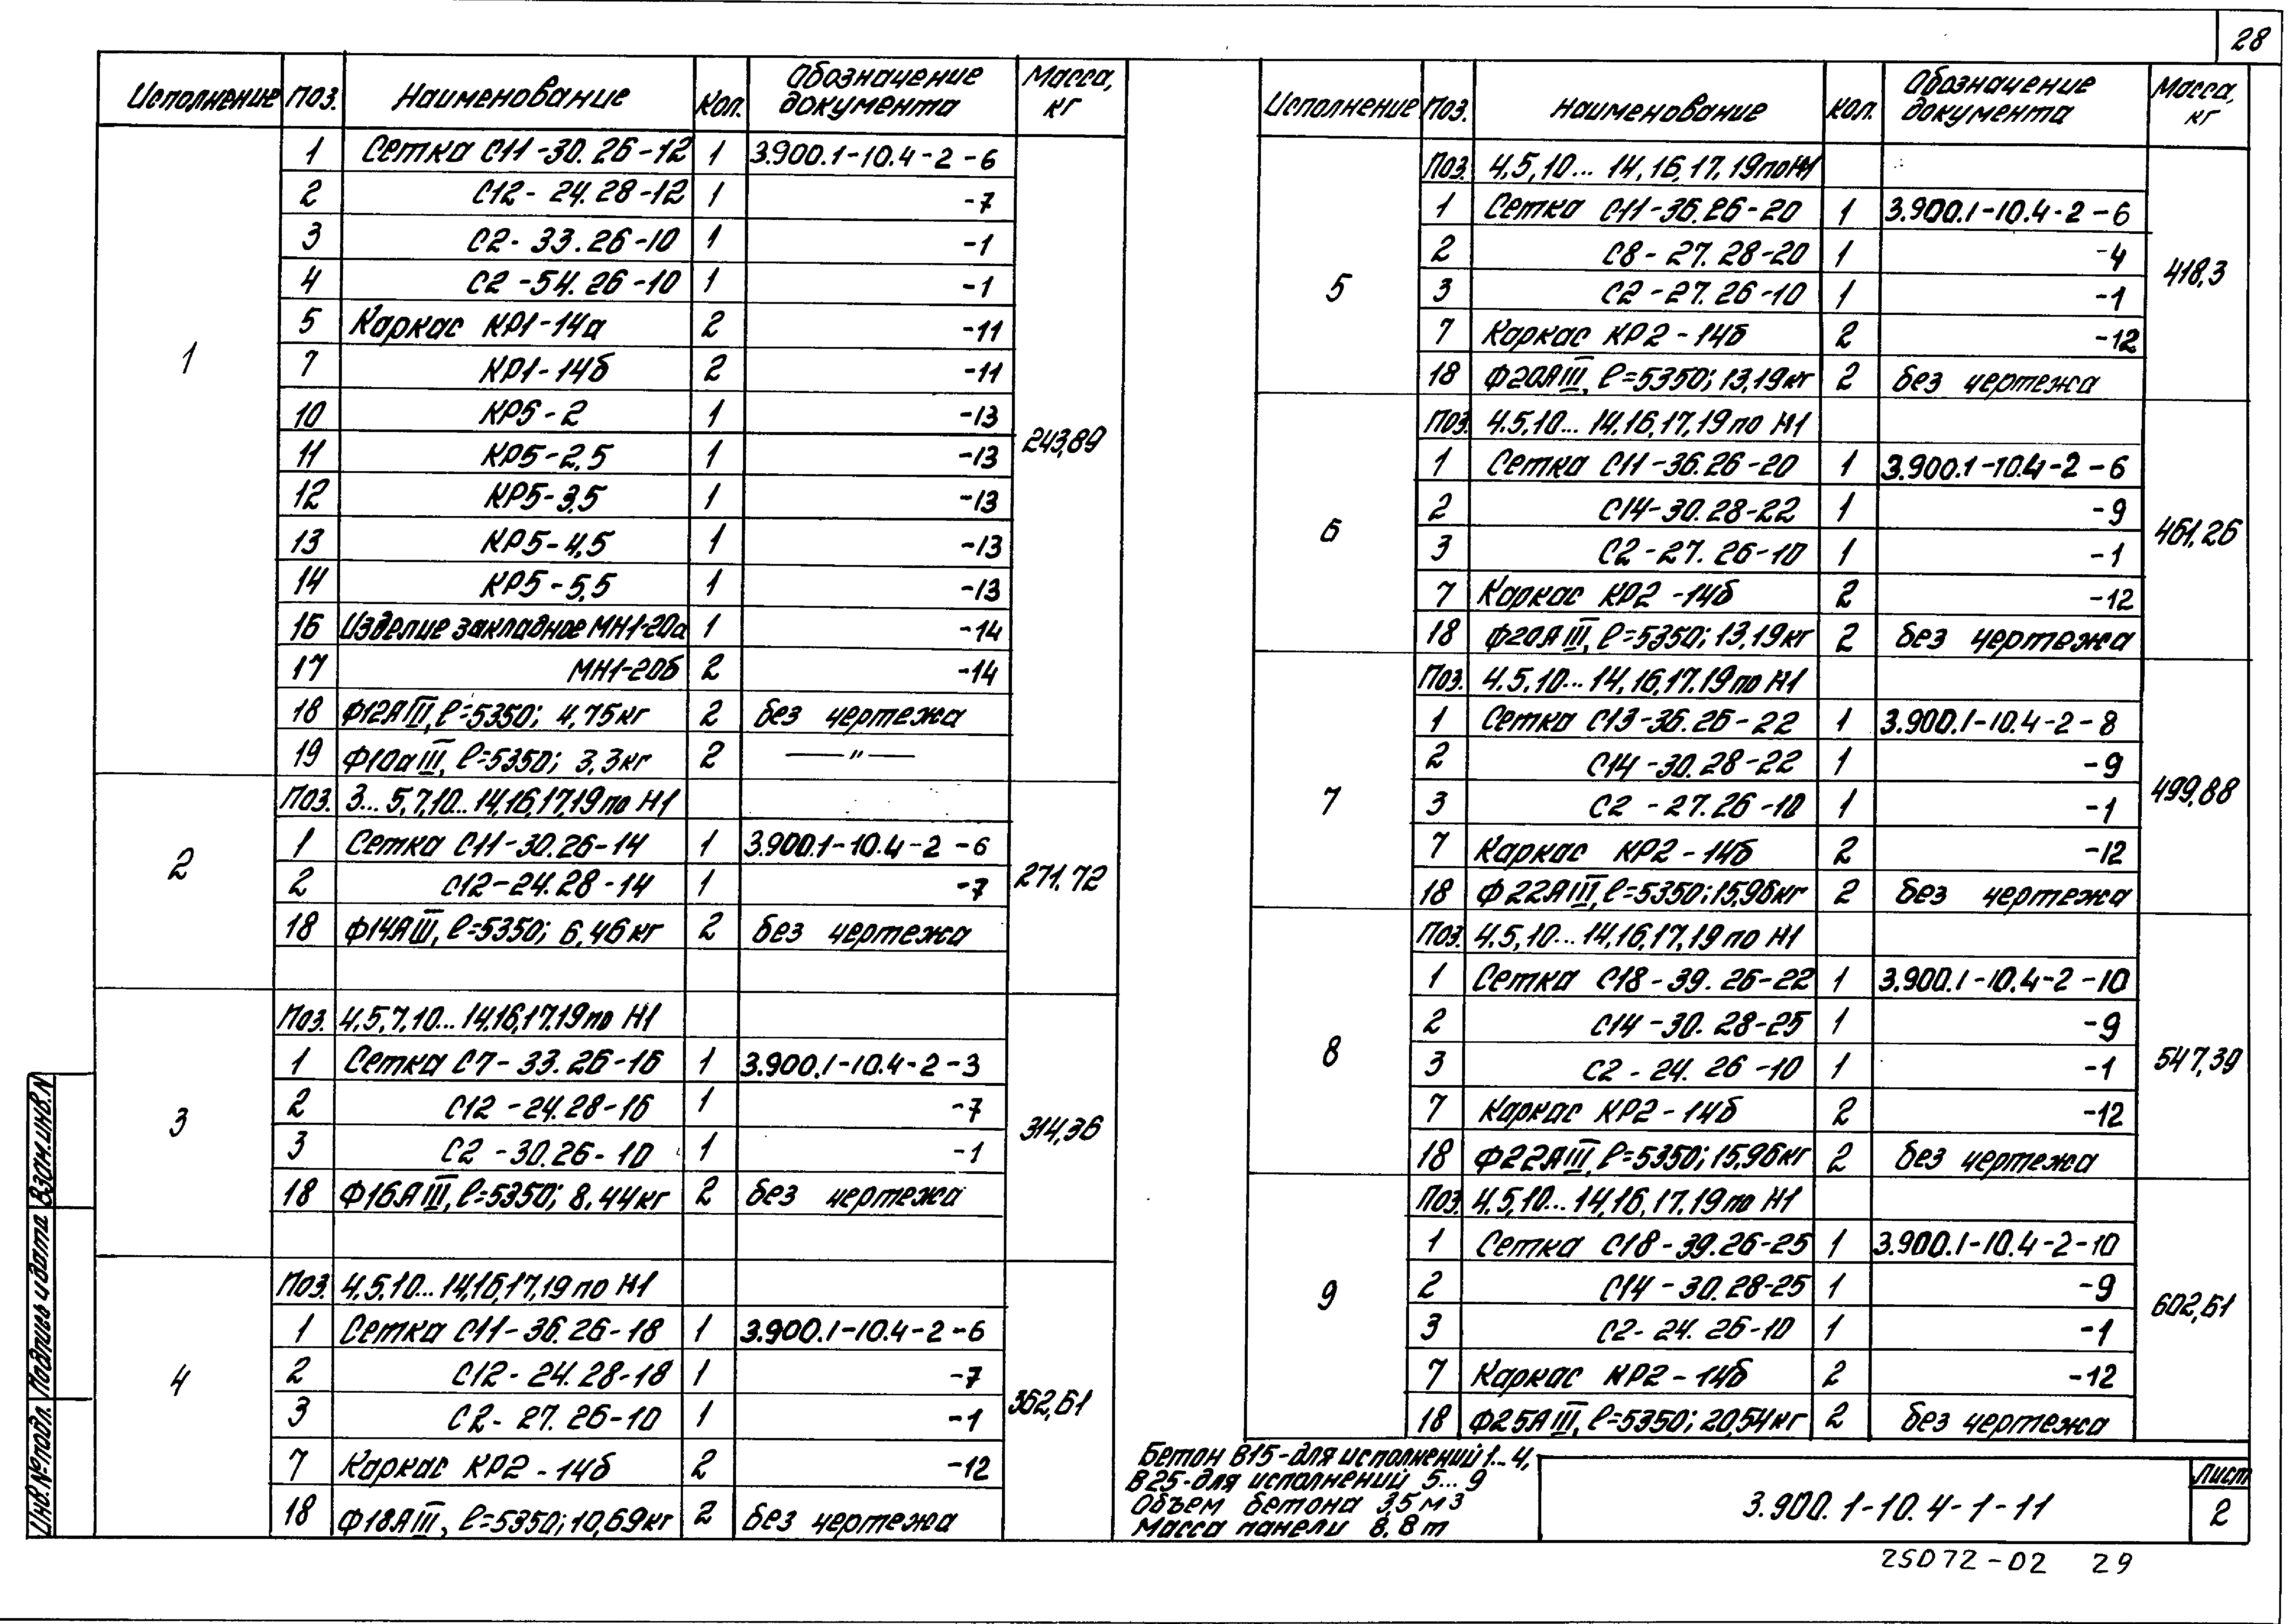 28
Исполнение Поз. Наименование Кол. Обозначение документа Масса, кг
1 243,89
1 Сетка С11-30.26-12 1 3.900.1-10.4-2-6
2 С12-24.28-12 1 -7
3 С2-33.26-10 1 -1
4 С2-54.26-10 1 -1
5 Каркас КР1-14а 2 -11
7 КР1-14б 2 -11
10 КР5-2 1 -13
11 КР5-2,5 1 -13
12 КР5-3,5 1 -13
13 КР5-4,5 1 -13
14 КР5-5,5 1 -13
16 Изделие закладное МН1-20а 1 -14
17 МН1-20б 2 -14
18 Ф12АIII, ℓ=5350; 4,75кг 2 без чертежа
19 Ф10аIII, ℓ=5350; 3,3кг 2 —"—
2 271.72
Поз. 3...5,7,10...14,16,17,19 по И1
1 Сетка С11-30.26-14 1 3.900.1-10.4-2-6
2 С12-24.28-14 1 -7
18 Ф14АIII, ℓ=5350; 6,46кг 2 без чертежа
3 314,36
Поз. 4,5,7,10...14,16,17,19 по И1
1 Сетка С7-33.26-16 1 3.900.1-10.4-2-3
2 С12-24.28-16 1 -7
3 С2-30.26-10 1 -1
18 Ф16АIII, ℓ=5350; 8,44кг 2 без чертежа
4 362,61
Поз. 4,5,10...14,16,17,19 по И1
1 Сетка С11-36.26-18 1 3.900.1-10.4-2-6
2 С12-24.28-18 1 -7
3 С2-27.26-10 1 -1
7 Каркас КР2-14б 2 -12
18 Ф18АIII, ℓ=5350; 10,69кг 2 без чертежа
Исполнение Поз. Наименование Кол. Обозначение документа Масса, кг
5 418,3
Поз. 4,5,10...14,16,17,19 по И1
1 Сетка С11-36.26-20 1 3.900.1-10.4-2-6
2 С8-27.28-20 1 -4
3 С2-27.26-10 1 -1
7 Каркас КР2-14б 2 -12
18 Ф20АIII, ℓ=5350; 13,19кг 2 без чертежа
6 461,26
Поз. 4.5,10...14,16,17,19 по И1
1 Сетка С11-36.26-20 1 3.900.1-10.4-2-6
2 С14-30.28-22 1 -9
3 С2-27.26-10 1 -1
7 Каркас КР2-14б 2 -12
18 Ф20АIII, ℓ=5350; 13,19кг 2 без чертежа
7 499,88
Поз. 4.5,10...14,16,17.19 по И1
1 Сетка С13-36.26-22 1 3.900.1-10.4-2-8
2 С14-30.28-22 1 -9
3 С2-27.26-10 1 -1
7 Каркас КР2-14б 2 -12
18 Ф22АIII, ℓ=5350; 15,96кг 2 без чертежа
8 547,39
Поз. 4.5,10...14,16,17,19 по И1
1 Сетка С18-39.26-22 1 3.900.1-10.4-2-10
2 С14-30.28-25 1 -9
3 С2-24.26-10 1 -1
7 Каркас КР2-14б 2 -12
18 Ф22АIII, ℓ=5350; 15,96кг 2 без чертежа
9 602,61
Поз. 4,5,10...14,16,17.19 по И1
1 Сетка С18-39.26-25 1 3.900.1-10.4-2-10
2 С14-30.28-25 1 -9
3 С2-24.26-10 1 -1
7 Каркас КР2-14б 2 -12
18 Ф25АIII, ℓ=5350; 20,54кг 2 без чертежа
Бетон В15-для исполнений 1...4,
В25-для исполнений 5...9
Объем бетона 3,5 м3
Масса панели 8,8 т
3.900.1-10.4-1-11
Лист
2
Инв.№подл. Подпись и дата Взам.инв.N
25072-02 29